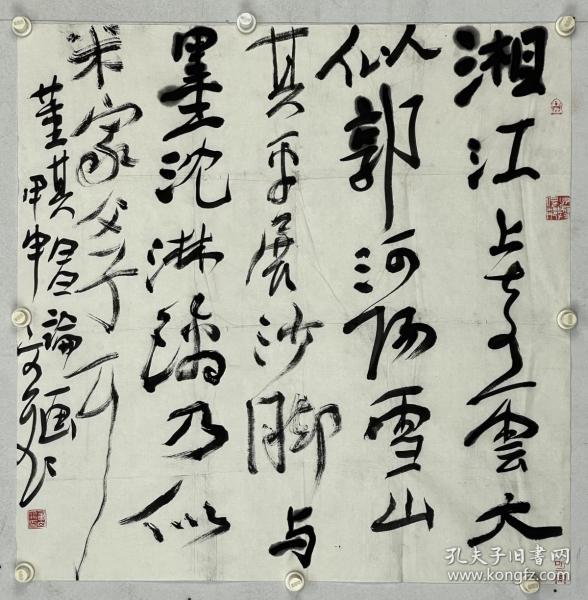 湘江上奇雲大
似郭河陽雪山
其平展沙脚与
墨沈淋漓乃似
米家父子耳
董其昌論画
甲申
孔夫子旧书网
www.kongfz.com